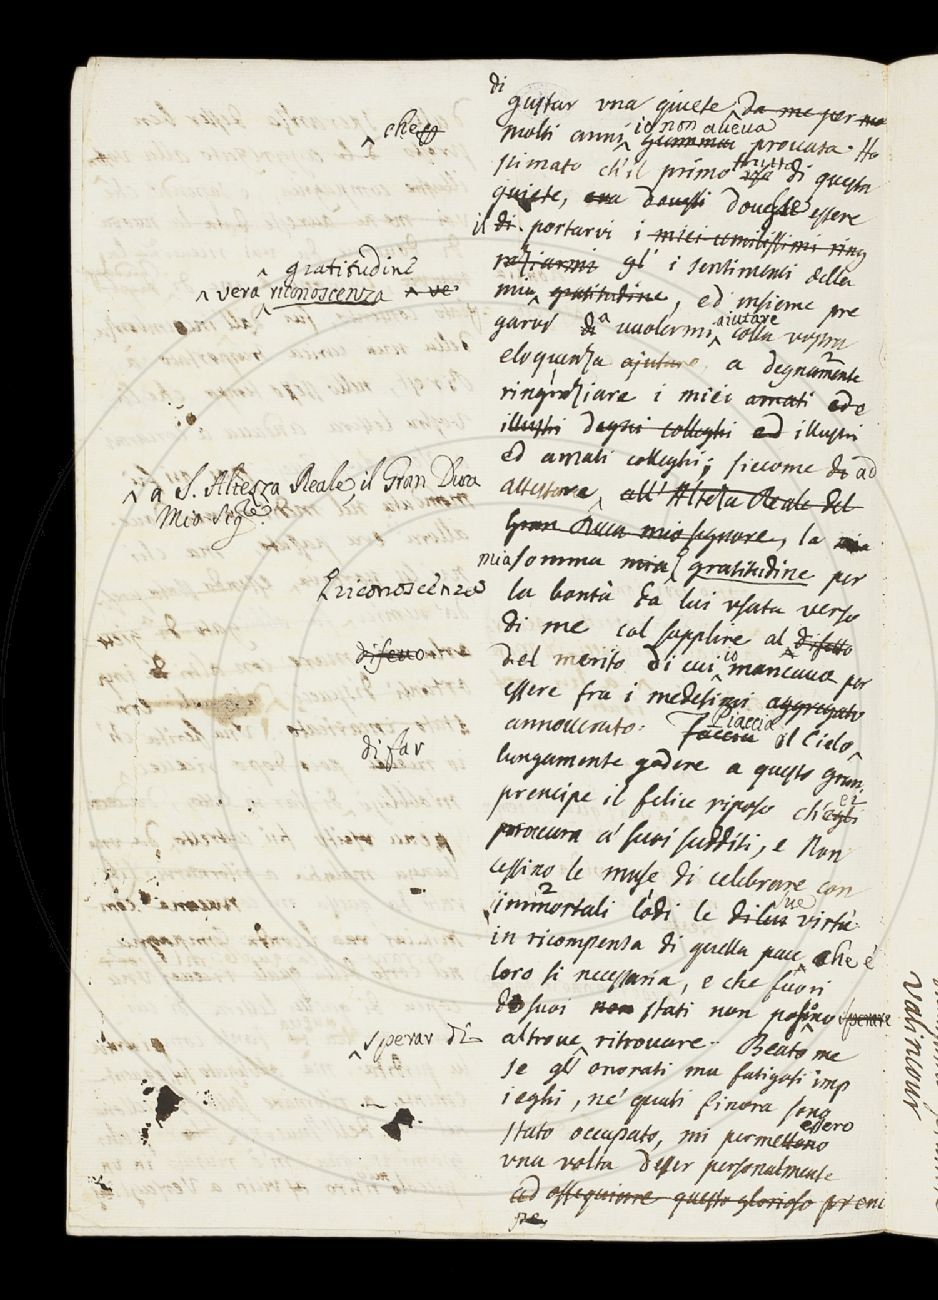 di
gustar una quiete da me per
^ che
molti anni io non aveva giammai provata. Ho
stimato ch'il primo frutto di questa
quiete, dovesse essere
il di portarvi i miei umilissimi ring
raziarmi gl' i sentimenti della
^ gratitudine
^ vera riconoscenza ^ ve
mia gratitudine, ed insieme pre
garvi di a uolermi aiutare colla vostra
eloquenza ajutare, a degnamente
ringraziare i miei amati ed
illustri degni colleghi ed illustri
ed amati colleghi; siccome di ad
^ a S. Altezza Reale il Gran Duca
Mio Sig.re
attestare, all'Alteza Reale del
Gran Duca mio signore, la mia
mia somma mia gratitudine per
riconoscenza
la bontà da lui usata verso
di me col supplire al difetto
difetto
del merito di cui io mancava per
essere fra i medesimi aggregato
annouerato. Faccia Piaccia il Cielo
di far
lungamente gadere a questo gran
prencipe il felice riposo ch'egli ei
procura a' suoi sudditi, e Non
cessino le muse di celebrare con
immortali lodi le di lui sue virtù
in ricompensa di quella pace che è
loro si necessaria, e che fuori
de suoi non stati non possono sperare
^ sperar di
altroue ritrouare. Beato me
se gl' onorati ma fatigosi imp
ieghi, ne' quali finora sono
stato occupato, mi permettono essero
una volta d'esser personalmente
ad ossequiare questo glorioso prenc
pe,